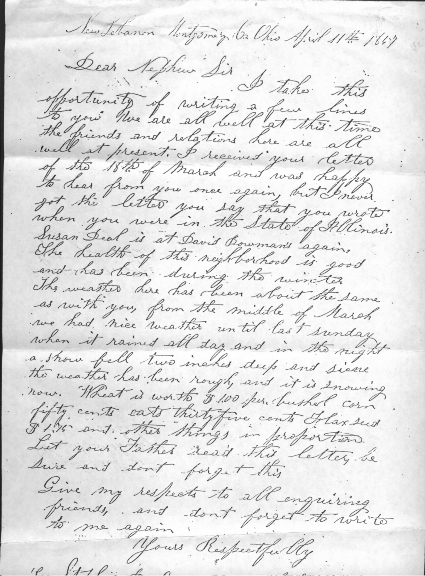 New Lebanon Montgomery Co Ohio April 11th 1867
Dear Nephew Sir
I take this
opportunity of writing a few lines
to you We are all well at this time
the friends and relations here are all
well at present. I received your letter
of the 18th of March and was happy
to hear from you once again, but I never
got the letter you say that you wrote
when you were in the State of Illinois.
Susan Deal is at David Bowmans again
The health of this neighborhood is good
and has been during the winter
The weather here has been about the same
as with you, from the middle of March
we had nice weather until last sunday
when it rained all day and in the night
a snow fell two inches deep and since
the weather has been rough, and it is snowing
now. Wheat is worth $ 1,00 per. bushel corn
fifty cents oats thirty five cents Flax seed
and other things in proportion
Let your Father read this letter, be
sure and dont forget this
Give my respects to all enquiring
friends, and dont forget to write
to me again
Yours Respectfully